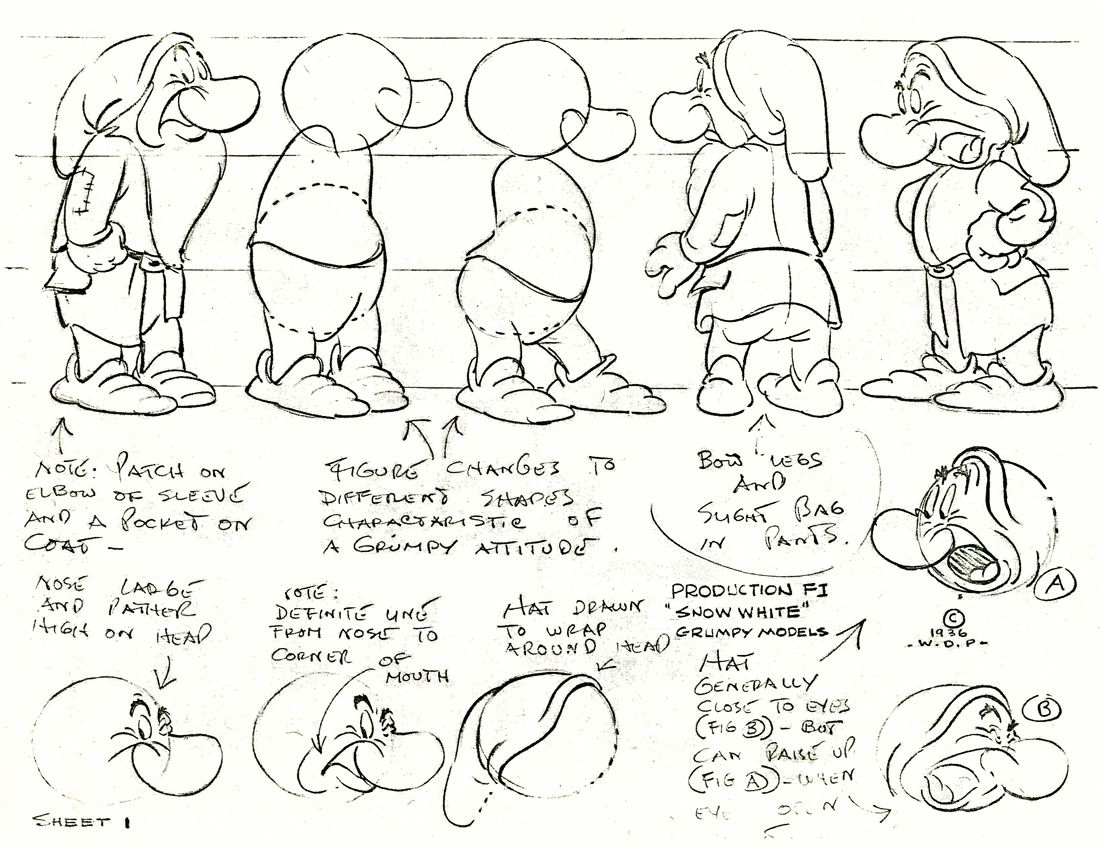 NOTE: PATCH ON
ELBOW OF SLEEVE
AND A POCKET ON
COAT -
FIGURE CHANGES TO
DIFFERENT SHAPES
CHARACTARISTIC OF
A GRUMPY ATTITUDE.
BOW LEGS
AND
SLIGHT BAG
IN PANTS.
NOSE LARGE
AND RATHER
HIGH ON HEAD
NOTE:
DEFINITE LINE
FROM NOSE TO
CORNER OF
MOUTH
HAT DRAWN
TO WRAP
AROUND HEAD
PRODUCTION F1
"SNOW WHITE"
GRUMPY MODELS
A
©
1936
- W.D.P -
HAT
GENERALLY
CLOSE TO EYES
(FIG B) - BUT
CAN RAISE UP
(FIG A) - WHEN
EYE
B
SHEET 1